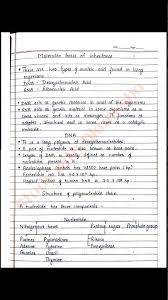 Molecular basis of inheritance
There are two types of nucleic acid found in living
organisms :-
DNA - Deoxyribonucleic Acid
RNA - Ribonucleic Acid
DNA acts as genetic material in most of the organisms
RNA acts as genetic material in some organisms as in
some viruses and acts as messenger. It functions as
adapter, structural and in some cases as a catalytic
molecule.
DNA
It is a long polymer of deoxyribonucleotides.
A pair of nucleotide is also known as base pairs
Length of DNA is usually defined as number of
nucleotides present in it.
Escherichia coli has
Haploid content of human DNA is
Structure of polynucleotide chain
A nucleotide has three components :-
Nucleotide
Nitrogenous bases Pentose sugar Phosphate group
Purines Pyrimidines Ribose
Adenine Cytosine Deoxyribose
Guanine Uracil
Thymine